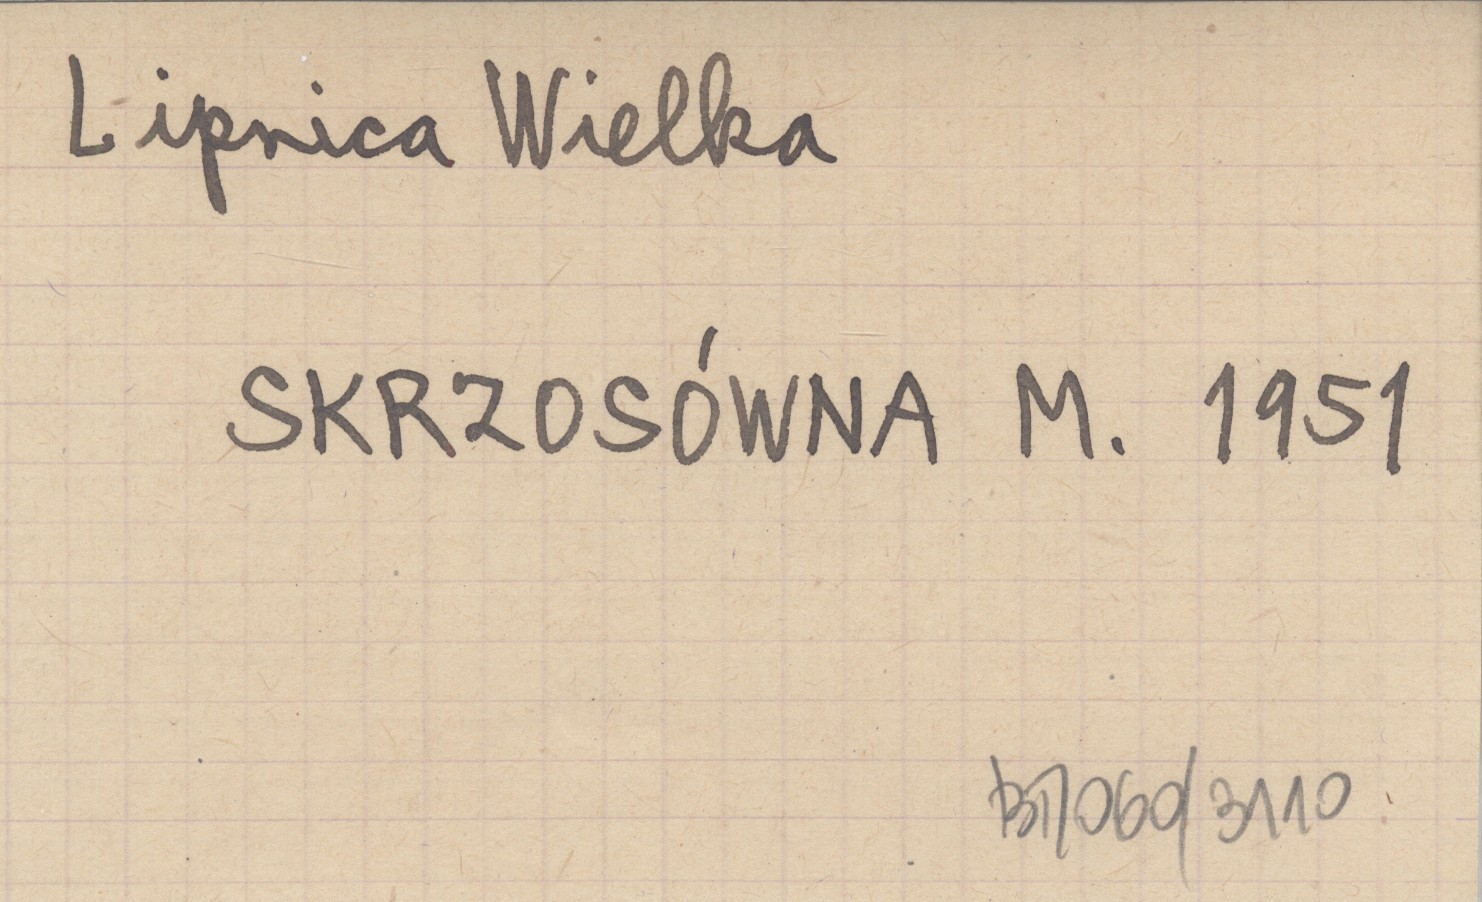 Lipnica Wielka
SKRZOSÓWNA M. 1951
060/3110